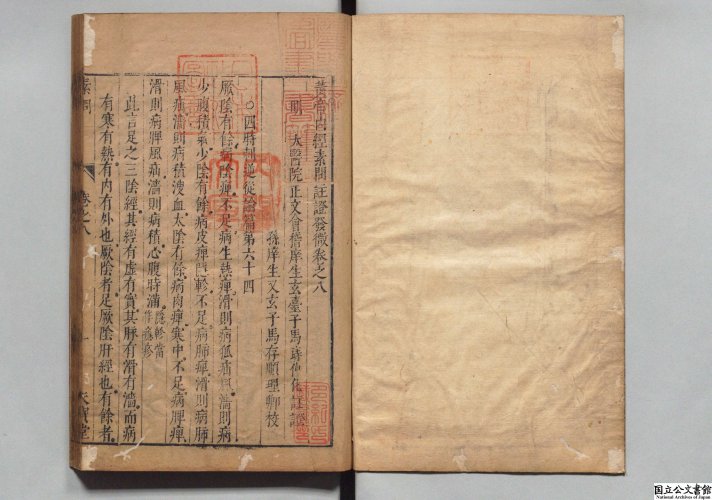 黃帝內經素問註證發微卷之八
明 太醫院正文會稽庠生玄臺子馬蒔仲化註證
孫庠生又玄子馬存順理卿校
○四時刺逆從論篇第六十四
厥陰有餘病陰痺不足病生熱痺滑則病狐疝風濇則病
少腹積氣少陰有餘病皮痺隱軫不足病肺痺滑則病肺
風疝濇則病積溲血太陰有餘病肉痺寒中不足病脾痺
滑則病脾風疝濇則病積心腹時滿 隱軫當作癮疹
此言足之三陰經其經有虛有實其脉有滑有濇而病
有寒有熱有內有外也厥陰者足厥陰肝經也有餘者
素問
卷之八
天寶堂
国立公文書館
National Archives of Japan